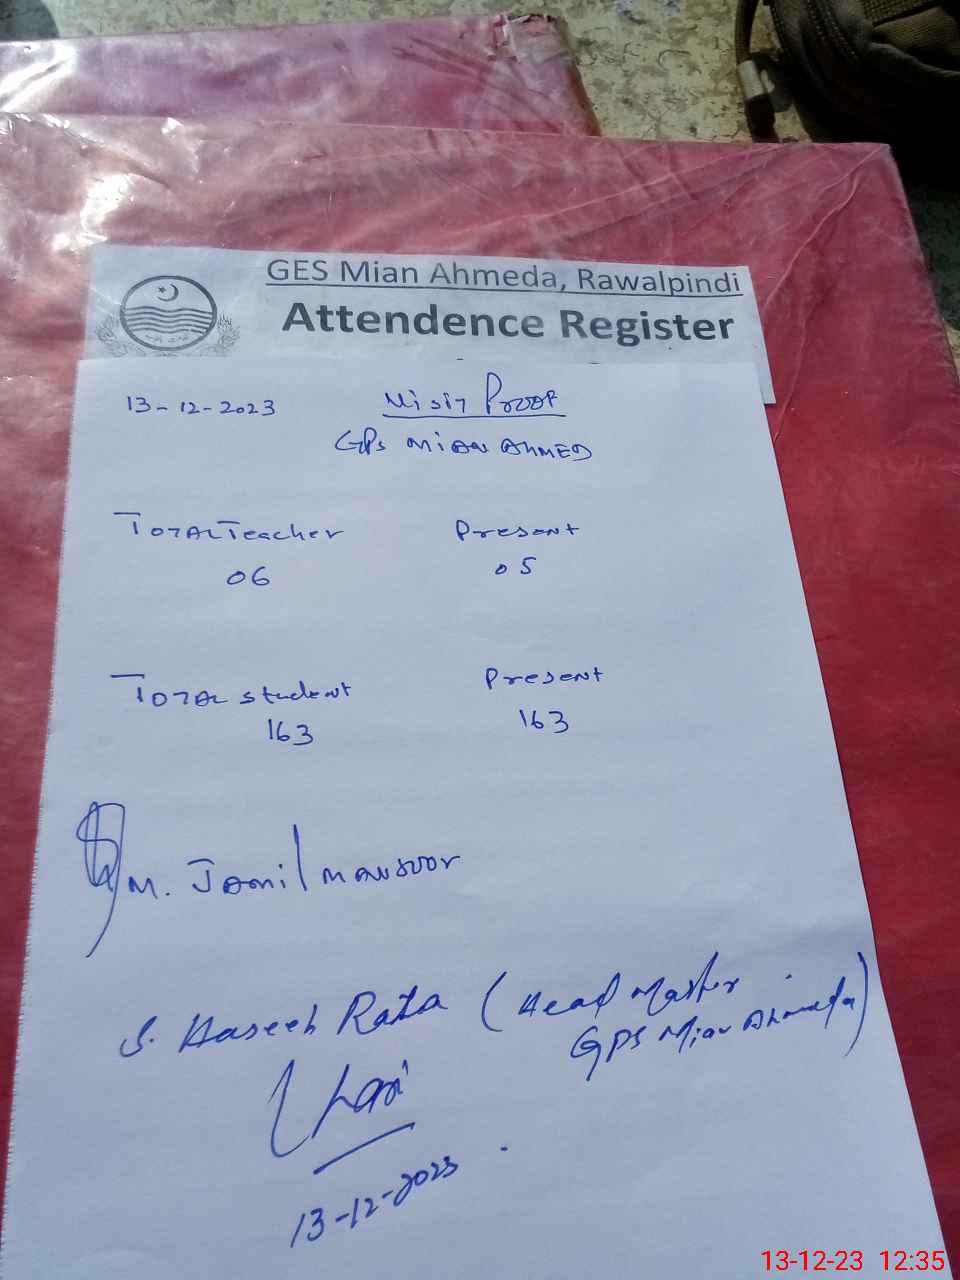 GES Mian Ahmeda, Rawalpindi
Attendence Register
13-12-2023 Visit Proof
GPS MIAN AHMED
Total Teacher Present
06 05
Total Student Present
163 163
M. Jamil mansoor
S. Haseeb Raza (Head Master
GPS Mian Ahmeda)
13-12-2023
13-12-23 12:35